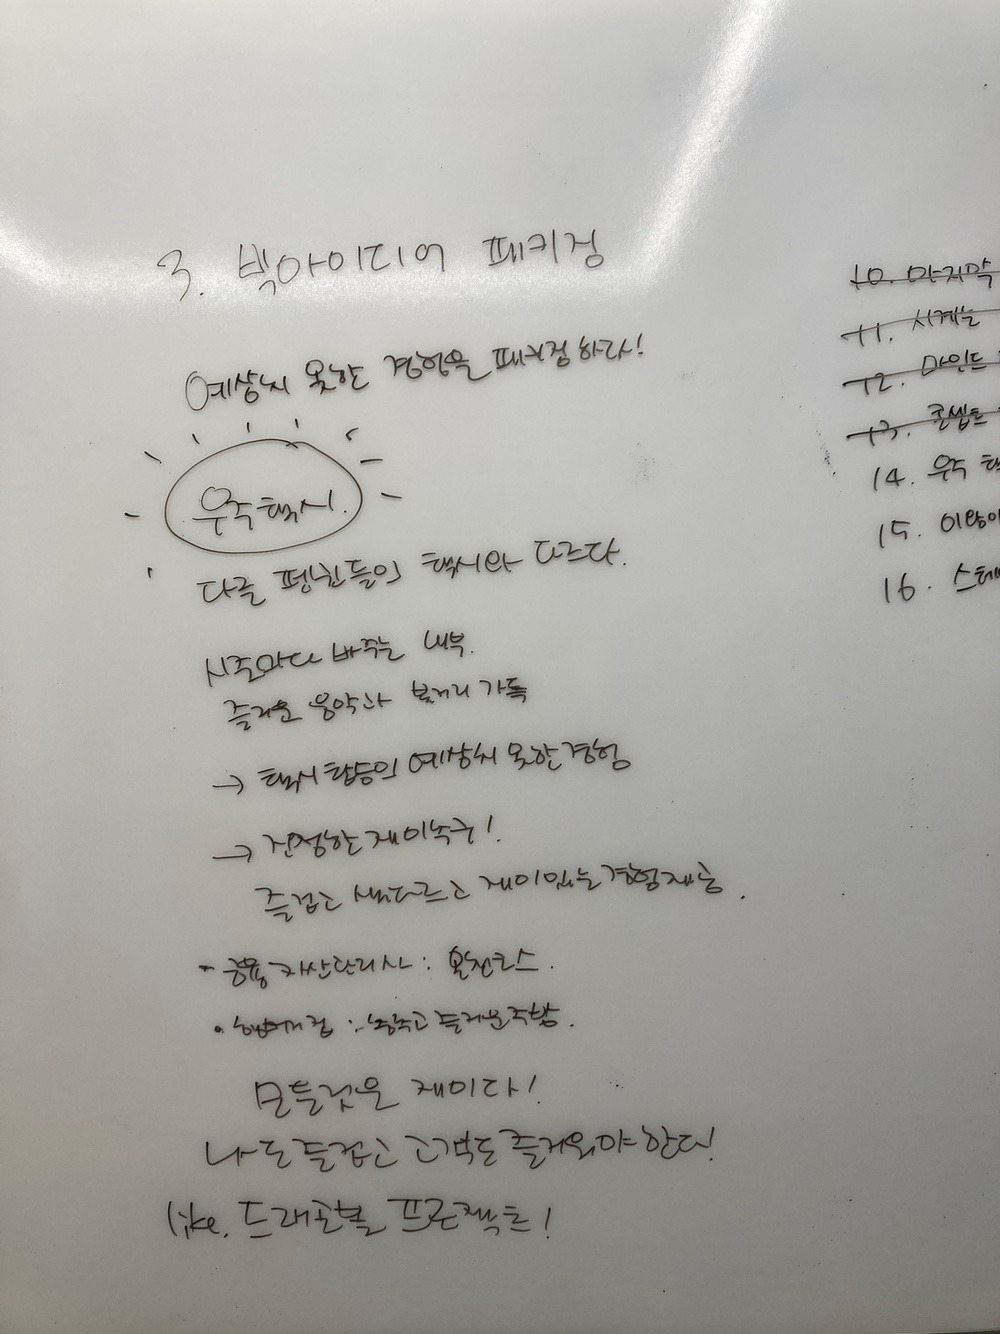 3. 빅아이디어 패키징
예상치 못한 경험을 패키징하라!
우주택시.
다른 펭귄들의 택시와 다르다.
시즌마다 바꾸는 내부.
즐거운 음악과 볼거리 가득
→ 택시탑승의 예상치 못한 경험
→ 진정한 재미추구!
즐겁고 색다르고 재미있는 경험제공.
자산관리사 : 원진호스.
즐거운
모든것은 재미다!
나도 즐겁고 고객도 즐거워야 한다!
like. 드래곤볼 프로젝트!
10. 마지막
11. 시계는
12. 마인드
13. 콘셉트
14. 우주 택
15.
16. 스테